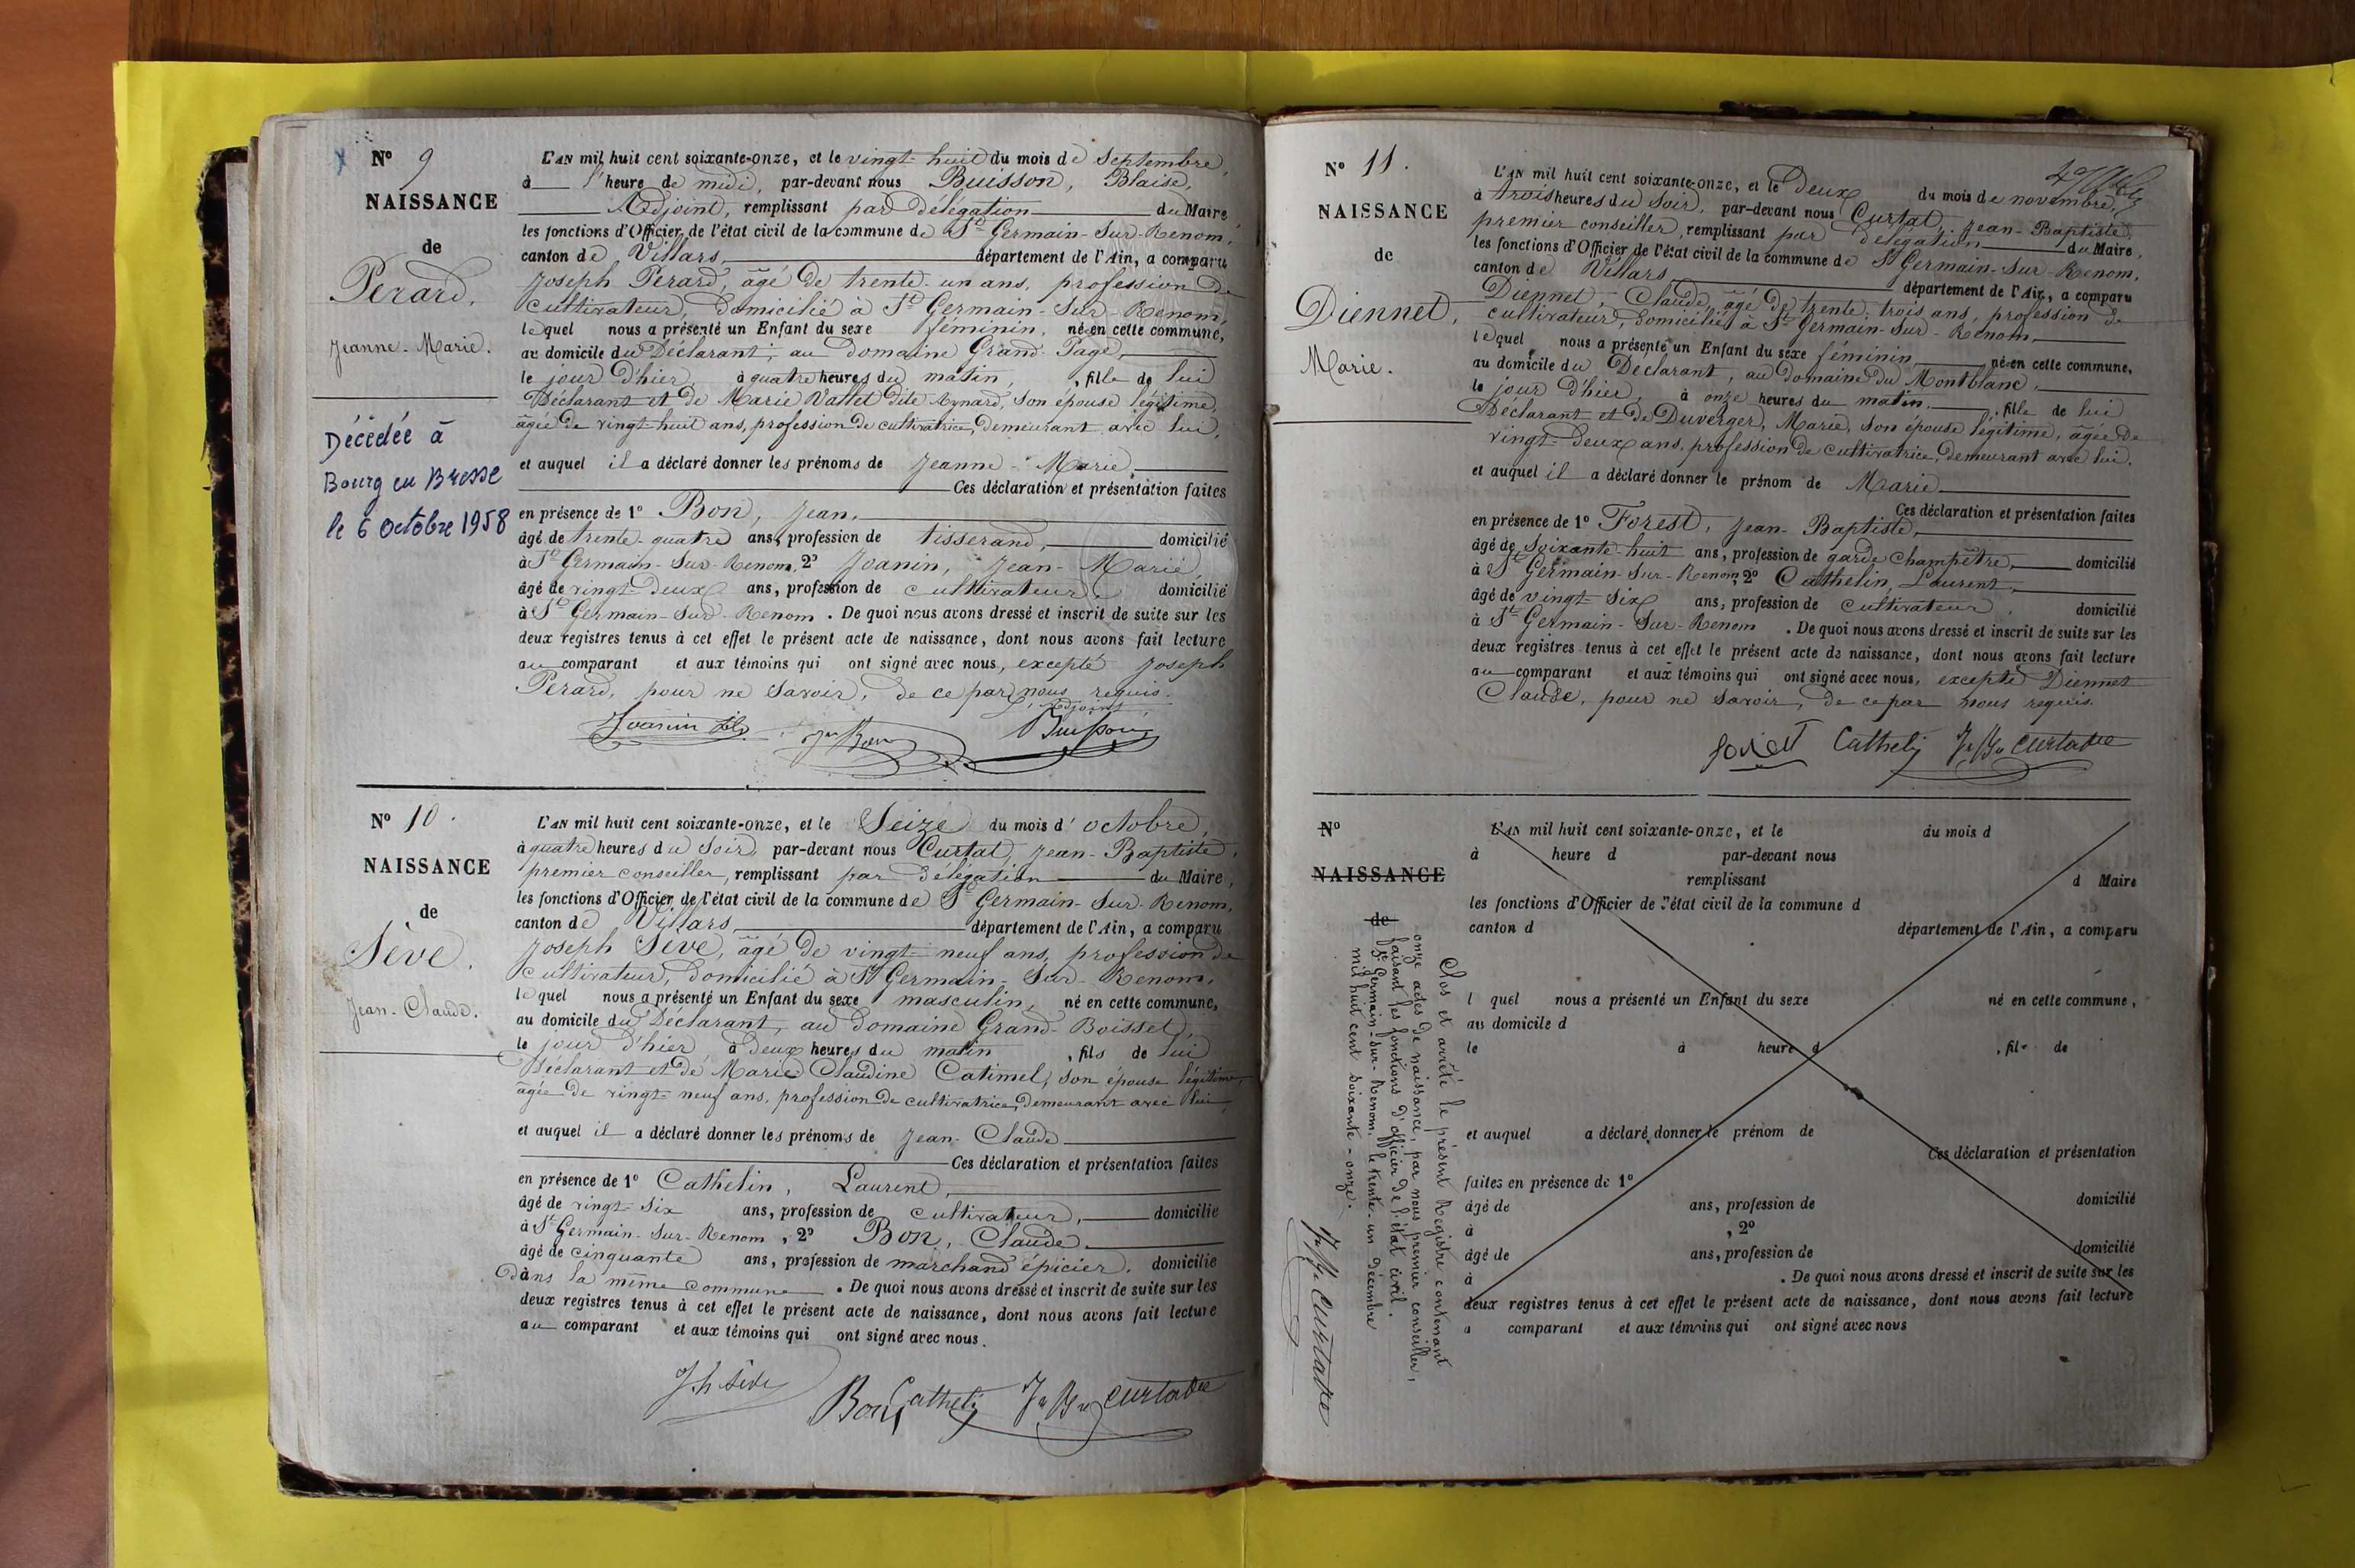 N° 9
NAISSANCE
de
Perard.
Jeanne-Marie.
Décédée à
Bourg en Bresse
le 6 octobre 1958
L'AN mil huit cent soixante-onze, et le vingt-huit du mois de Septembre,
à l'heure de midi, par-devant nous Buisson, Blaise,
Adjoint, remplissant par délégation du Maire,
les fonctions d'Officier de l'état civil de la commune de St Germain-Sur-Renom,
canton de Villars, département de l'Ain, a comparu
Joseph Perard, âgé de trente-un ans, profession de
cultivateur, domicilié à St Germain-Sur-Renom,
lequel nous a présenté un Enfant du sexe féminin, né en cette commune,
au domicile du Déclarant, au domaine Grand-Page,
le jour d'hier, à quatre heures du matin, fille de lui
Déclarant et de Marie Vallet dite Mynard, son épouse légitime,
âgée de vingt-huit ans, profession de cultivatrice, demeurant avec lui,
et auquel il a déclaré donner les prénoms de Jeanne-Marie,
Ces déclaration et présentation faites
en présence de 1° Bon, Jean,
âgé de trente-quatre ans, profession de tisserand, domicilié
à St Germain-Sur-Renom, 2° Joanin, Jean-Marie,
âgé de vingt-deux ans, profession de cultivateur, domicilié
à St Germain-Sur-Renom. De quoi nous avons dressé et inscrit de suite sur les
deux registres tenus à cet effet le présent acte de naissance, dont nous avons fait lecture
au comparant et aux témoins qui ont signé avec nous, excepté Joseph
Perard, pour ne savoir, de ce par nous requis.
L'adjoint,
Joanin fils Jn Bon Buisson
N° 10.
NAISSANCE
de
Sève.
Jean-Claude.
L'AN mil huit cent soixante-onze, et le Seize du mois d'octobre,
à quatre heures du soir, par-devant nous Curtat, Jean-Baptiste,
premier conseiller, remplissant par délégation du Maire,
les fonctions d'Officier de l'état civil de la commune de St Germain-Sur-Renom,
canton de Villars, département de l'Ain, a comparu
Joseph Sève, âgé de vingt-neuf ans, profession de
cultivateur, domicilié à St Germain-Sur-Renom,
lequel nous a présenté un Enfant du sexe masculin, né en cette commune,
au domicile du Déclarant, au domaine Grand-Boissel,
le jour d'hier à deux heures du matin, fils de lui
Déclarant et de Marie Claudine Catimel, son épouse légitime,
âgée de vingt-neuf ans, profession de cultivatrice, demeurant avec lui,
et auquel il a déclaré donner les prénoms de Jean-Claude
Ces déclaration et présentation faites
en présence de 1° Cathelin, Laurent,
âgé de vingt-six ans, profession de cultivateur, domicilié
à St Germain-Sur-Renom, 2° Bon, Claude
âgé de cinquante ans, profession de marchand épicier, domicilié
dans la même commune. De quoi nous avons dressé et inscrit de suite sur les
deux registres tenus à cet effet le présent acte de naissance, dont nous avons fait lecture
au comparant et aux témoins qui ont signé avec nous.
Jh Sève
Bon Cathelin Jn Bte Curtat
N° 11.
NAISSANCE
de
Diennet,
Marie.
L'AN mil huit cent soixante-onze, et le Deux du mois de novembre,
à trois heures du soir, par-devant nous Curtat, Jean-Baptiste,
premier conseiller, remplissant par délégation du Maire,
les fonctions d'Officier de l'état civil de la commune de St Germain-Sur-Renom,
canton de Villars département de l'Ain, a comparu
Diennet, Claude, âgé de trente-trois ans, profession de
cultivateur, domicilié à St Germain-Sur-Renom,
lequel nous a présenté un Enfant du sexe féminin né en cette commune,
au domicile du Déclarant, au domaine du Montblanc,
le jour d'hier, à onze heures du matin, fille de lui
Déclarant et de Duverger, Marie, son épouse légitime, âgée de
vingt-deux ans, profession de cultivatrice, demeurant avec lui.
et auquel il a déclaré donner le prénom de Marie
Ces déclaration et présentation faites
en présence de 1° Forest, Jean-Baptiste,
âgé de soixante-huit ans, profession de garde champêtre, domicilié
à St Germain-Sur-Renom, 2° Cathelin, Laurent,
âgé de vingt-six ans, profession de cultivateur, domicilié
à St Germain-Sur-Renom. De quoi nous avons dressé et inscrit de suite sur les
deux registres tenus à cet effet le présent acte de naissance, dont nous avons fait lecture
au comparant et aux témoins qui ont signé avec nous, excepté Diennet
Claude, pour ne savoir, de ce par nous requis.
forest Cathelin Jn Bte Curtat
N°
NAISSANCE
de
Clos et arrêté le présent Registre contenant
onze actes de naissance, par nous premier conseiller,
faisant les fonctions d'officier de l'état civil.
St Germain-sur-Renom, le trente-un décembre
mil huit cent soixante-onze.
Jn Bte Curtat
L'AN mil huit cent soixante-onze, et le du mois d
à heure d par-devant nous
remplissant d Maire
les fonctions d'Officier de l'état civil de la commune d
canton d département de l'Ain, a comparu
l quel nous a présenté un Enfant du sexe né en cette commune,
au domicile d
le à heure d , fil de
et auquel a déclaré donner le prénom de
Ces déclaration et présentation
faites en présence de 1°
âgé de ans, profession de domicilié
à , 2°
âgé de ans, profession de domicilié
à . De quoi nous avons dressé et inscrit de suite sur les
deux registres tenus à cet effet le présent acte de naissance, dont nous avons fait lecture
a comparant et aux témoins qui ont signé avec nous